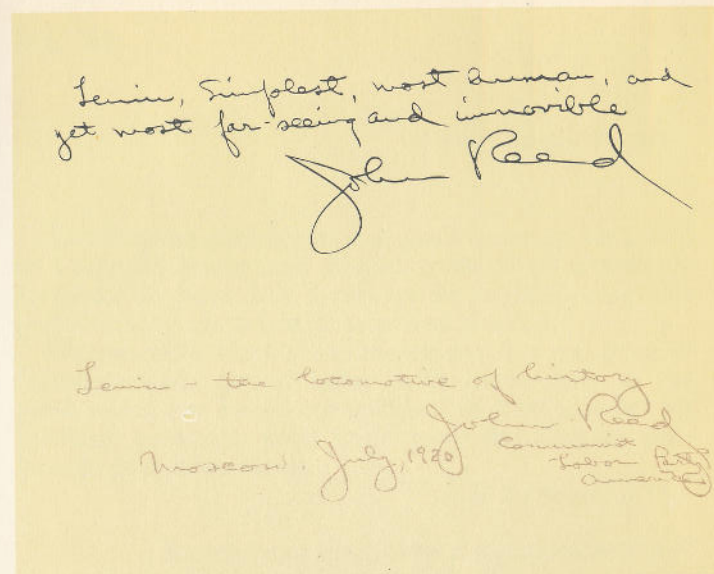 Lenin, Simplest, most human, and
yet most far-seeing and immovible
John Reed
Lenin – the locomotive of history
John Reed
Communist
Labor Party
America
Moscow. July, 1920